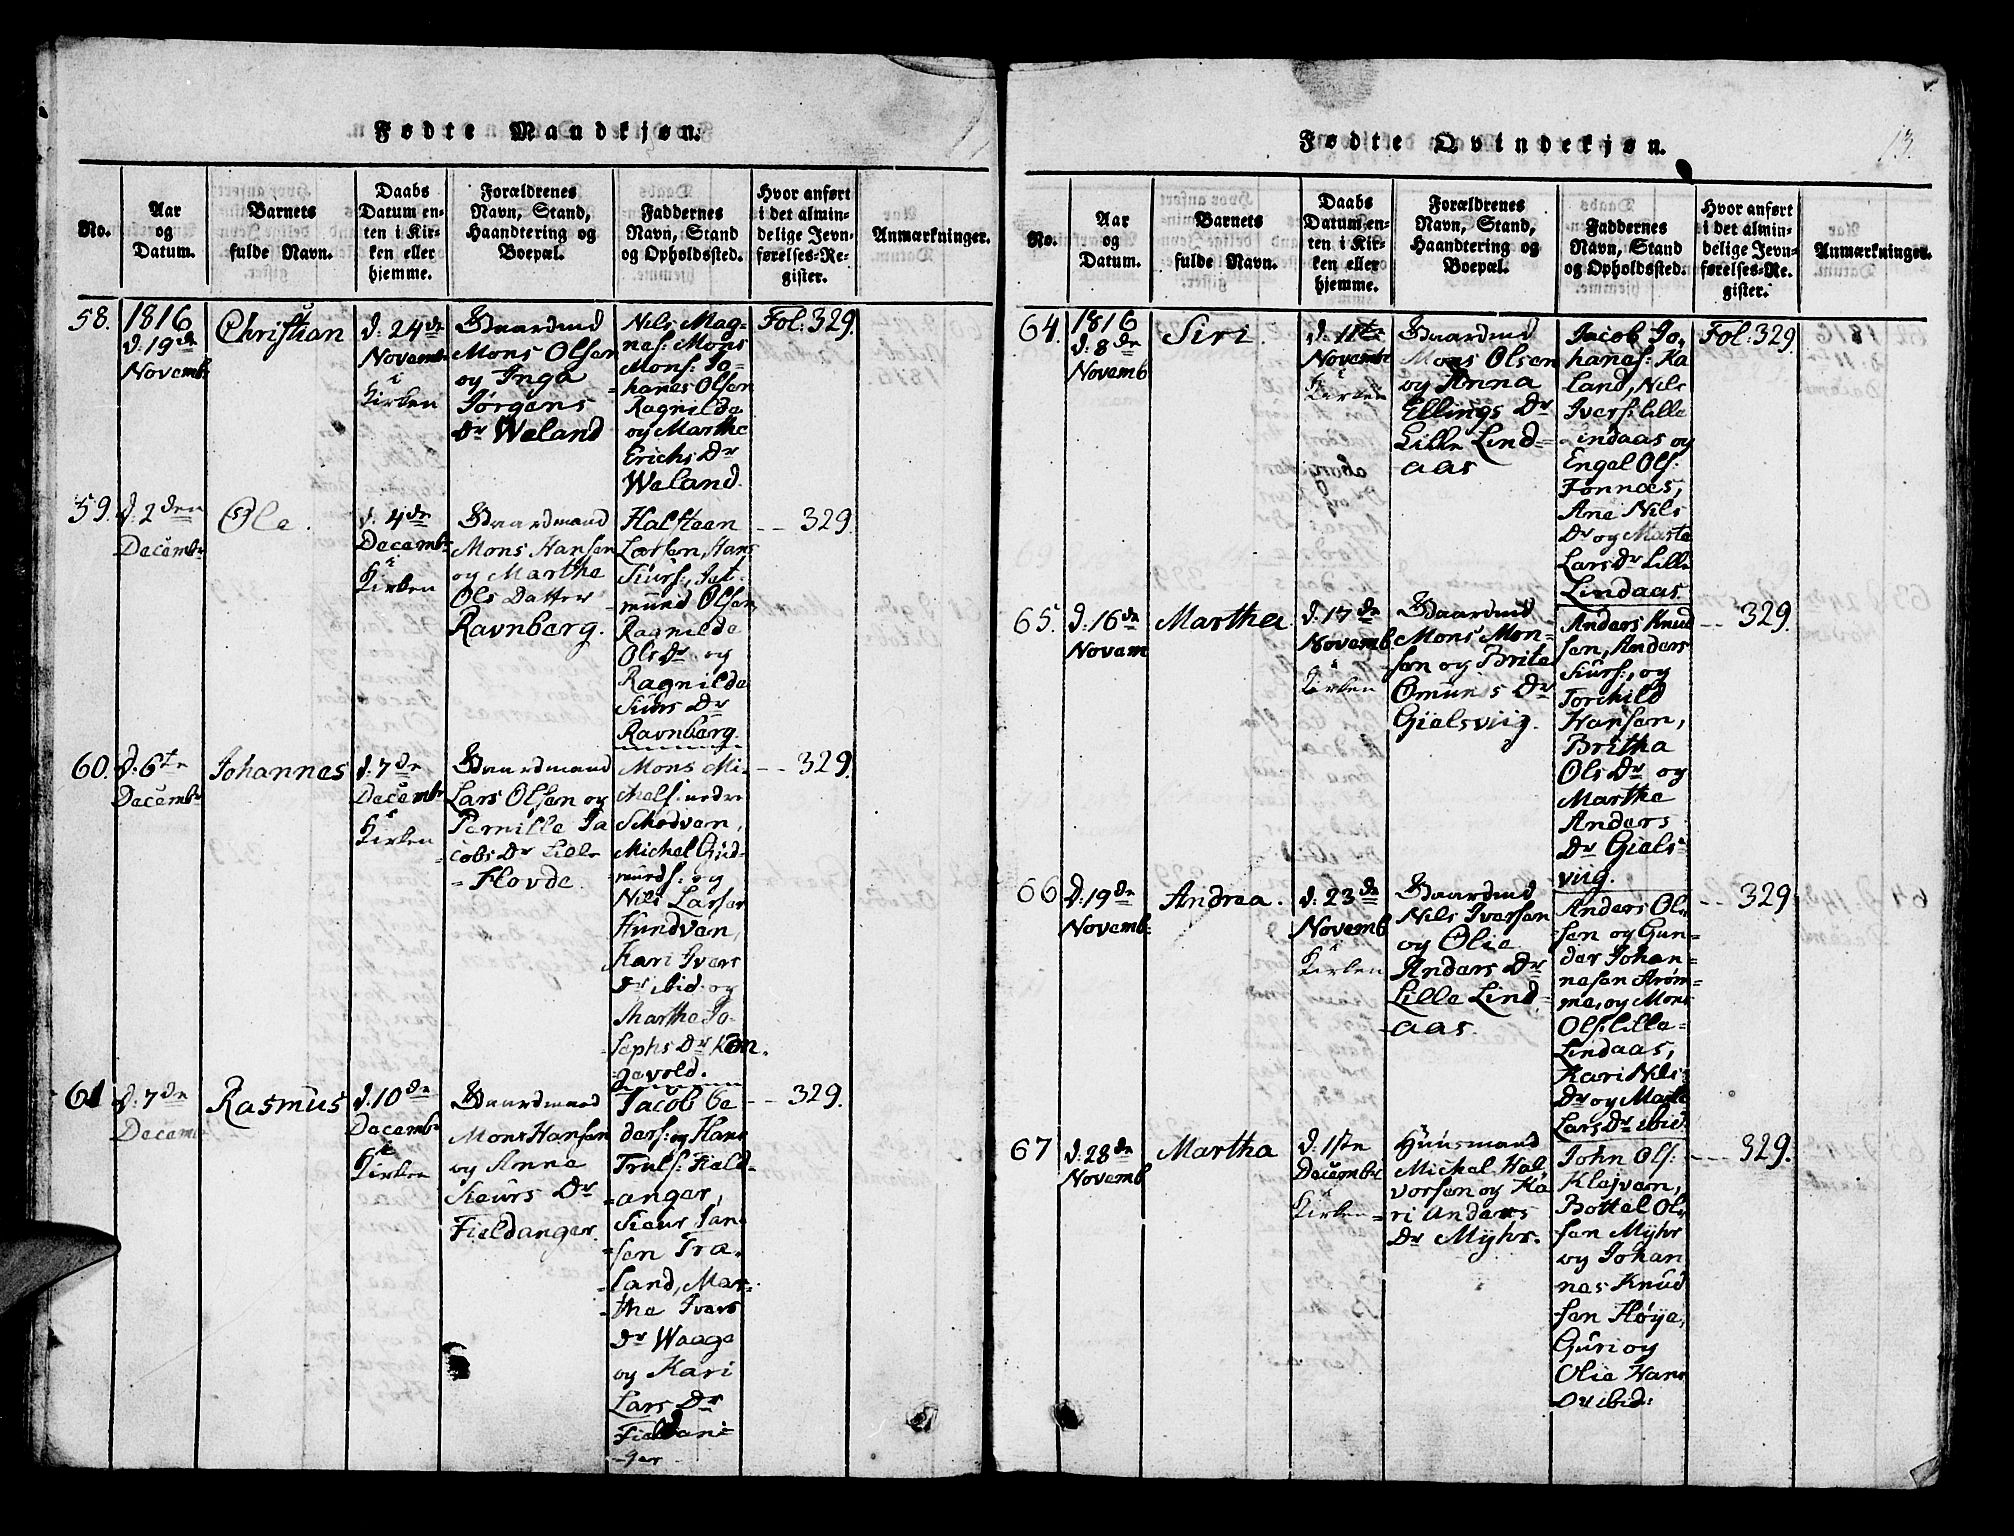 Fødte Mandkjøn.
No.
Aar
og
Datum.
Barnets
fulde Navn.
Daabs
Datum en-
ten i Kir-
ken eller
hjemme.
Forældrenes
Navn, Stand,
Haandtering og
Boepæl.
Faddernes
Navn, Stand
og Opholdssted.
Hvor anført
i det almin-
delige Jevn-
førelses-Re-
gister.
Anmærkninger.
58.
1816
d. 19de
Novembr
Christian
d: 24de
Novembr
i
Kirken
Gaardmd
Mons Olsen
og Inga
Jørgens
Dr Weland
Nils Mag-
nes: Mons
Mons: Jo-
hanes Olsen
Ragnilde
og Marthe
Erichs Dr
Weland.
Fol: 329.
59.
d. 2den
Decembr
Ole.
d. 4de
Decembr
i
Kirken
Gaardmand
Mons Hansen
og Marthe
Ols Datter
Ravnberg.
Halsteen
Larsen, Hans
Siurs:, Jet-
mund Olsen,
Ragnilde
Ols Dr og
Ragnilde
Siurs Dr
Ravnberg.
-- 329.
60.
d. 6te
Decembr
Johannes
d. 7de
Decembr
i
Kirken
Gaardmand
Lars Olsen og
Pernille Ja
cobs Dr Lille
= Flovde.
Mons Mi-
chels: nedre
Schodven,
Michel Gud-
munds: og
Nils Larsen
Hundven,
Kari Ivers
Dr ibid. og
Marthe Jo-
sephs Dr Kon-
gevold.
-- 329.
61
d. 7de
Decemb
Rasmus
d. 10de
Decembr
i
Kirken
Gaardmand
Mons Hansen
og Anne
Sieurs Dr
Fieldanger.
Jacob Pe
ders: og Hans
Truls: Field-
anger,
Sieur Jan-
sen Træ-
land, Mar-
the Ivers
Dr Waage
og Kari
Lars Dr
Fieldan-
ger
-- 329.
Fødte Qvindekjøn.
13.
No.
Aar
og
Datum.
Barnets
fulde Navn.
Daabs
Datum en-
ten i Kir-
ken eller
hjemme.
Forældrenes
Navn, Stand,
Haandtering og
Boepæl.
Faddernes
Navn, Stand
og Opholdssted.
Hvor anført
i det almin-
delige Jevn-
førelses-Re-
gister.
Anmærkninger.
64.
1816
d. 8de
Novemb
Siri.
d. 11te
Novembr
i
Kirken
Gaardmd
Mons Olsen
og Anna
Ellings Dr
Lille Lind-
aas
Jacob Jo-
hanes: Ka
land, Nils
Ivers: Lille
Lindaas og
Engel Ols:
Fonnæs,
Ane Nils
Dr og Marte
Lars Dr Lille
Lindaas
Fol: 329.
65.
d. 16de
Novem
Martha
d. 17de
Novemb
i
Kirken
Gaardmd
Mons Mon-
sen og Brite
Omund's Dr
Gielsviig.
Anders Knud
sen, Anders
Siurs:, og
Torchild
Hansen,
Britha
Ols Dr og
Marthe
Anders
Dr Giels-
viig.
-- 329.
66
d. 19de
Novemb:
Andrea.
d. 23de
Novemb
i
Kirken
Gaardmd
Nils Iversen
og Olie
Anders Dr
Lille Lind-
aas.
Anders Ol-
sen og Gun-
der Johan-
nesen Strøm-
me, og Mons
Ols: Lille-
Lindaas,
Kari Nils-
Dr og Marte
Lars Dr ibid.
-- 329.
67
d. 28de
Novemb
Martha
d. 1ste
Decembr
i
Kirken
Huusmand
Michel Hal-
vorsen og Ka
ri Anders
Dr Myhr.
John Ols:
Klejven,
Bottel Ol-
sen Myhr
og Johan
nes Knud
sen Høye,
Guri og
Olie Hans
Dr ibid:
-- 329.